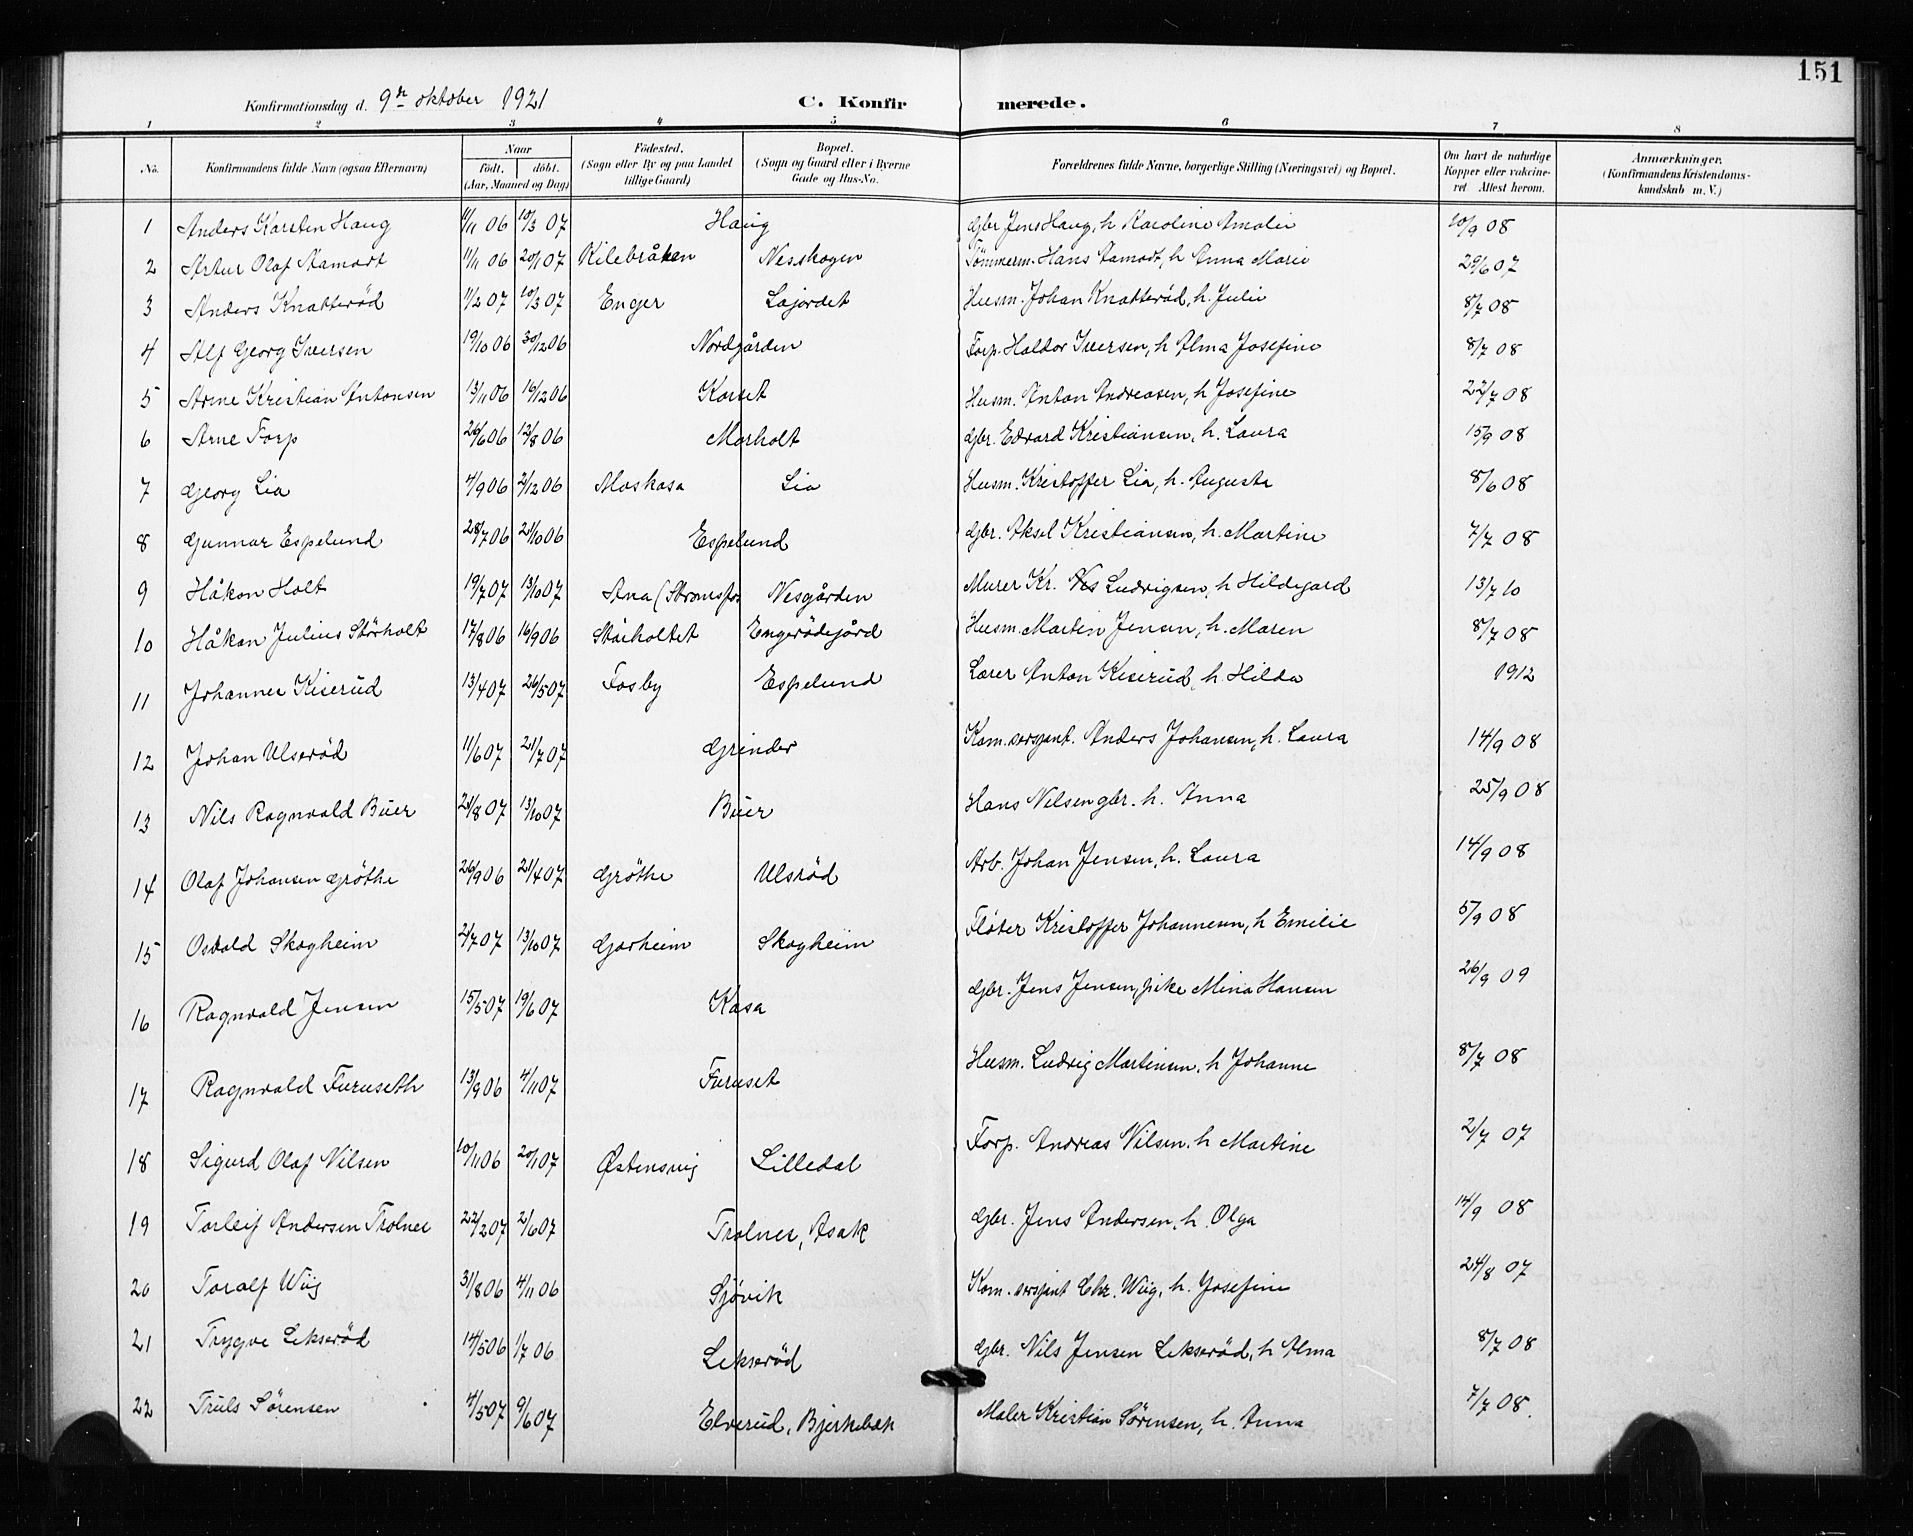 151
Konfirmationsdag d. 9de oktober 1921 C. Konfirmerede.
1 2 3 4 5 6 7 8
No. Konfirmandens fulde Navn (ogsaa Efternavn) Naar födt. döbt. (Aar, Maaned og Dag) Födested. (Sogn eller By og paa Landet tillige Gaard) Bopæl. (Sogn og Gaard eller i Byerne Gade og Hus-No. Forældrenes fulde Navne, borgerlige Stilling (Næringsvei) og Bopæl. Om havt de naturlige Kopper eller vakcineret Attest herom. Anmærkninger. (Konfirmandens Kristendomskundskab m. V.)
1 Anders Karsten Haug 11/11 06 10/3 07 Haug gbr Jens Haug, h Karoline Amalie 10/9 08
2 Artur Olaf Aamodt 11/11 06 20/1 07 Kilebråken Nesskogen Tömmerm. Hans Aamodt, h Anna Marie 29/6 07
3 Anders Knatteröd 11/2 07 10/3 07 Enger Lajordet Husm. Johan Knatteröd, h. Julie 8/7 08
4 Alf Georg Iversen 19/10 06 30/12 06 Nordgården Forp. Haldor Iversen, h Alma Josefine 8/7 08
5 Arne Kristian Antonsen 13/11 06 16/12 06 Korset Husm. Anton Andreasen, h Josefine 22/7 08
6 Arne Torp 26/6 06 12/8 06 Morholt gbr. Edvard Kristiansen, h. Laura 15/9 08
7 Georg Lia 4/9 06 2/12 06 Moskasa Lia Husm. Kristoffer Lia, h. Augusta 8/6 08
8 Gunnar Espelund 28/7 06 21/10 06 Espelund gbr. Aksel Kristiansen, h. Martine 7/7 08
9 Håkon Holt 19/7 07 13/10 07 Ana (Strømsfos Nesgården Murer Kr. Ludvigsen, h Hildegard 13/7 10
10 Håkon Julius Störholt 17/8 06 16/9 06 Störholtet Engerödejård Husm. Martin Jensen, h. Maren 8/7 08
11 Johannes Kiserud 13/4 07 26/5 07 Fosby Espelund Lærer Anton Kiserud, h. Hilda 1912
12 Johan Ulseröd 11/6 07 21/7 07 Grinder Kom. sersjant. Anders Johansen, h. Laura 14/9 08
13 Nils Ragnvald Buer 21/8 07 13/10 07 Buer Hans Nilsen gbr. h. Anna 25/9 08
14 Olaf Johansen Gröthe 26/9 06 21/4 07 Gröthe Ulsröd Arb. Johan Jensen, h. Laura 14/9 08
15 Osvald Skogheim 2/7 07 13/10 07 Gorheim Skogheim Fløter Kristoffer Johannesen, h Emilie 5/9 08
16 Ragnvald Jensen 15/5 07 19/6 07 Kasa gbr. Jens Jensen, pike Mina Hansen 26/9 09
17 Ragnvald Furuseth 13/9 06 4/11 07 Furuset Husm. Ludvig Martinsen, h Johanne 8/7 08
18 Sigurd Olaf Nilsen 10/11 06 20/1 07 Østensvig Lilledal Forp. Andreas Nilsen, h Martine 2/7 07
19 Torleif Andersen Trolner 22/2 07 2/6 07 Trolner, Asak gbr. Jens Andersen, h. Olga 14/9 08
20 Toralf Wiig 31/8 06 4/11 06 Sjövik Kom. sersjant Chr. Wiig, h. Josefine 24/8 07
21 Trygve Lekseröd 14/5 06 1/7 06 Lekseröd gbr. Nils Jensen Lekseröd, h Alma 8/7 08
22 Truls Sörensen 4/5 07 9/6 07 Elverud, Bjerkebæk Maler Kristian Sörensen, h. Anna 7/7 08.